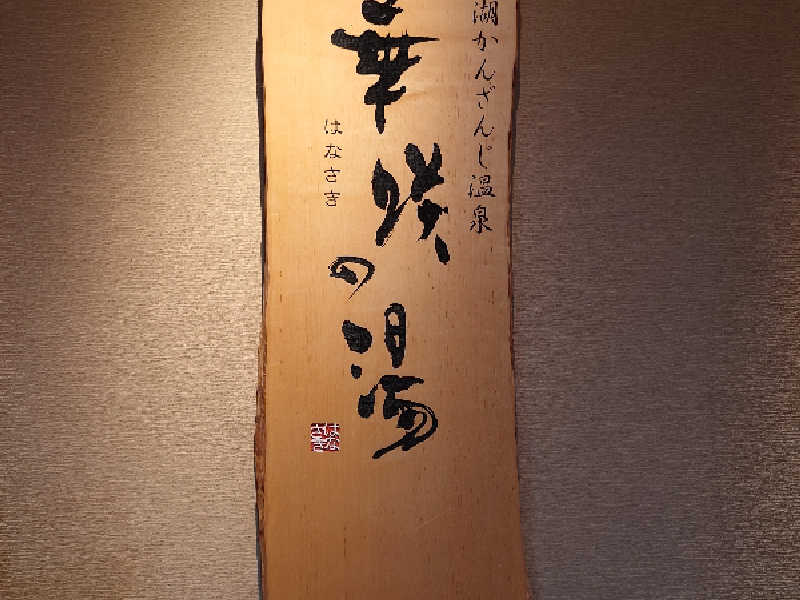 湖かんざんじ温泉
華咲の湯
はなさき